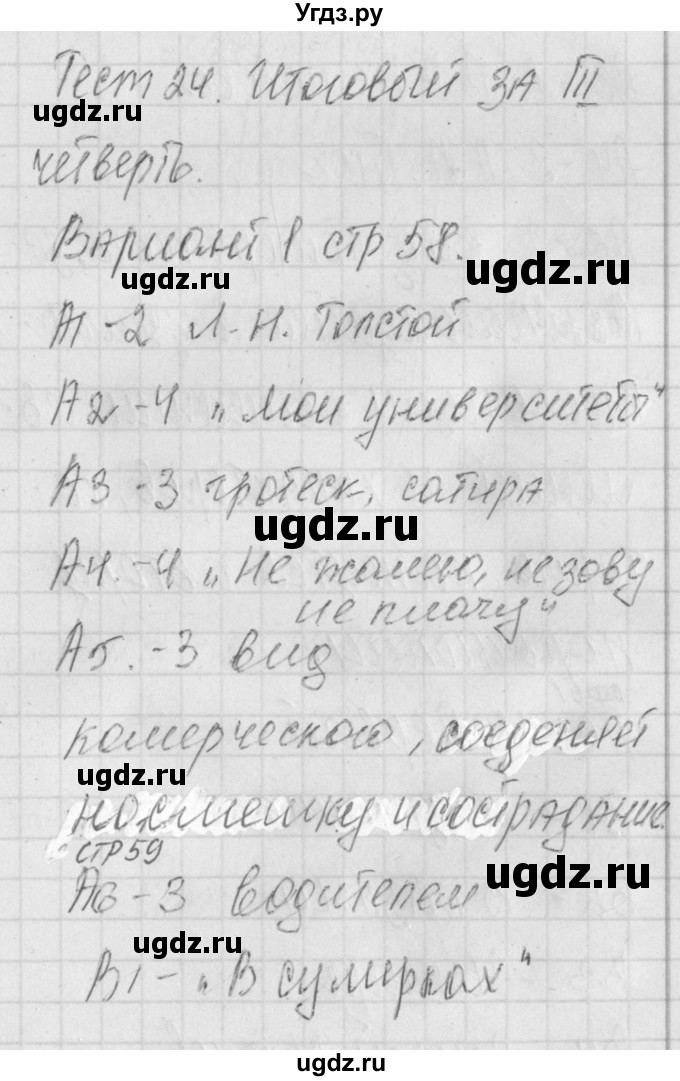 Угдз.ру
Тест 24. Итоговый за III
ugdz.ru
четверть.
Вариант 1 стр 58.
ugdz.ru
ugdz.ru
А1 - 2 Л. Н. Толстой
А2 - 4 „Мои университеты"
А3 - 3 гротеск, сатира
ugdz.ru
А4. - 4 „Не жалею, не зову
не плачу"
А5. - 3 вид
комерческого, соеденяет
ugdz.ru
нохмешку и сострадание.
стр 59
ugdz.ru
А6 - 3 водителем
ugdz.ru
В1 - „В сумирках"
ugdz.ru